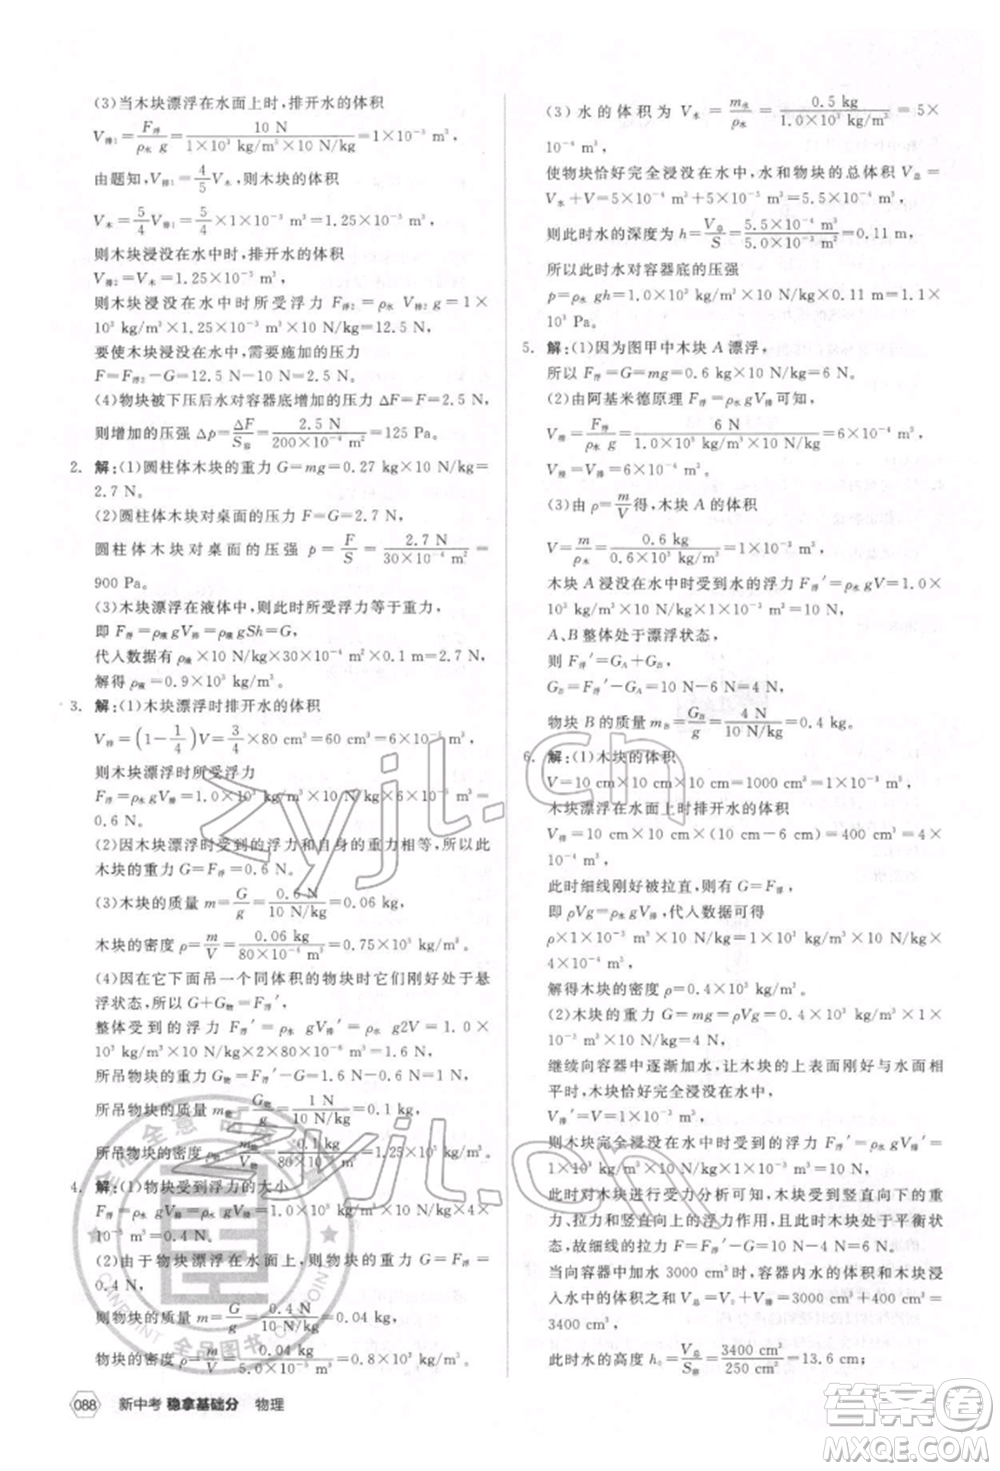 (3)当木块漂浮在水面上时,排开水的体积
V排1=F浮/ρ水 g=10 N/1×10³ kg/m³×10 N/kg=1×10⁻³ m³,
由题知,V排1=4/5 V木,则木块的体积
V木=5/4 V排1=5/4×1×10⁻³ m³=1.25×10⁻³ m³,
则木块浸没在水中时,排开水的体积
V排2=V木=1.25×10⁻³ m³,
则木块浸没在水中时所受浮力 F浮2=ρ水 gV排2=1×
10³ kg/m³×1.25×10⁻³ m³×10 N/kg=12.5 N,
要使木块浸没在水中,需要施加的压力
F=F浮2-G=12.5 N-10 N=2.5 N,
(4)物块被下压后水对容器底增加的压力 ΔF=F=2.5 N,
则增加的压强 Δp=ΔF/S容=2.5 N/200×10⁻⁴ m²=125 Pa。
2. 解:(1)圆柱体木块的重力 G=mg=0.27 kg×10 N/kg=
2.7 N。
(2)圆柱体木块对桌面的压力 F=G=2.7 N,
圆柱体木块对桌面的压强 p=F/S=2.7 N/30×10⁻⁴ m²=
900 Pa。
(3)木块漂浮在液体中,则此时所受浮力等于重力,
即 F浮=ρ液 gV排=ρ液 gSh=G,
代入数据有 ρ液×10 N/kg×30×10⁻⁴ m²×0.1 m=2.7 N,
解得 ρ液=0.9×10³ kg/m³。
3. 解:(1)木块漂浮时排开水的体积
V排=(1-1/4)V=3/4×80 cm³=60 cm³=6×10⁻⁵ m³,
则木块漂浮时所受浮力
F浮=ρ水 gV排=1.0×10³ kg/m³×10 N/kg×6×10⁻⁵ m³=
0.6 N。
(2)因木块漂浮时受到的浮力和自身的重力相等,所以木
块的重力 G=F浮=0.6 N。
(3)木块的质量 m=G/g=0.6 N/10 N/kg=0.06 kg,
木块的密度 ρ=m/V=0.06 kg/80×10⁻⁶ m³=0.75×10³ kg/m³。
(4)因在它下面吊一个同体积的物块时它们刚好处于悬
浮状态,所以 G+G物=F浮′,
整体受到的浮力 F浮′=ρ水 gV排′=ρ水 g2V=1.0×
10³ kg/m³×10 N/kg×2×80×10⁻⁶ m³=1.6 N,
所吊物块的重力 G物=F浮′-G=1.6 N-0.6 N=1 N,
所吊物块的质量 m物=G物/g=1 N/10 N/kg=0.1 kg,
所吊物块的密度 ρ物=m物/V=0.1 kg/80×10⁻⁶ m³=1.25×10³ kg/m³。
4. 解:(1)物块受到浮力的大小
F浮=ρ水 gV排=1.0×10³ kg/m³×10 N/kg×4×10⁻⁵ m³=
0.4 N。
(2)由于物块漂浮在水面上,则物块的重力 G=F浮=
0.4 N,
则物块的质量 m=G/g=0.4 N/10 N/kg=0.04 kg,
物块的密度 ρ=m/V=0.04 kg/5×10⁻⁵ m³=0.8×10³ kg/m³。
088 新中考 稳拿基础分 物理
(3)水的体积为 V水=m水/ρ水=0.5 kg/1.0×10³ kg/m³=5×
10⁻⁴ m³,
使物块恰好完全浸没在水中,水和物块的总体积 V总=
V水+V=5×10⁻⁴ m³+5×10⁻⁵ m³=5.5×10⁻⁴ m³,
则此时水的深度为 h=V总/S=5.5×10⁻⁴ m³/5.0×10⁻³ m²=0.11 m,
所以此时水对容器底的压强
p=ρ水 gh=1.0×10³ kg/m³×10 N/kg×0.11 m=1.1×
10³ Pa。
5. 解:(1)因为图甲中木块 A 漂浮,
所以 F浮=G=mg=0.6 kg×10 N/kg=6 N。
(2)由阿基米德原理 F浮=ρ水 gV排可知,
V排=F浮/ρ水 g=6 N/1.0×10³ kg/m³×10 N/kg=6×10⁻⁴ m³,
V浸=V排=6×10⁻⁴ m³。
(3)由 ρ=m/V得,木块 A 的体积
V=m/ρ=0.6 kg/0.6×10³ kg/m³=1×10⁻³ m³,
木块 A 浸没在水中时受到水的浮力 F浮′=ρ水 gV=1.0×
10³ kg/m³×10 N/kg×1×10⁻³ m³=10 N,
A、B 整体处于漂浮状态,
则 F浮′=G_A+G_B,
G_B=F浮′-G_A=10 N-6 N=4 N,
物块 B 的质量 m_B=G_B/g=4 N/10 N/kg=0.4 kg。
6. 解:(1)木块的体积
V=10 cm×10 cm×10 cm=1000 cm³=1×10⁻³ m³,
木块漂浮在水面上时排开水的体积
V排=10 cm×10 cm×(10-6)cm=400 cm³=4×
10⁻⁴ m³,
此时细线刚好被拉直,则有 G=F浮,
即 ρVg=ρ水 gV排,代入数据可得
ρ×1×10⁻³ m³×10 N/kg=1.0×10³ kg/m³×10 N/kg×
4×10⁻⁴ m³,
解得木块的密度 ρ=0.4×10³ kg/m³。
(2)木块的重力 G=mg=ρVg=0.4×10³ kg/m³×1×
10⁻³ m³×10 N/kg=4 N,
继续向容器中逐渐加水,让木块的上表面刚好与水面相
平时,木块恰好完全浸没在水中,
V排′=V=1×10⁻³ m³,
则木块完全浸没在水中时受到的浮力 F浮′=ρ水 gV排′=
1×10³ kg/m³×10 N/kg×1×10⁻³ m³=10 N,
此时对木块进行受力分析可知,木块受到竖直向下的重
力、拉力和竖直向上的浮力作用,由于木块处于平衡状
态,故细线的拉力 F=F浮′-G=10 N-4 N=6 N,
当向容器中加水 3000 cm³ 时,容器内水的体积和木块浸
入水中的体积之和 V总=V水+V排=3000 cm³+400 cm³=
3400 cm³,
此时水的高度 h₀=V总/S=3400 cm³/250 cm²=13.6 cm,
zyjl.cn
zyjl.cn
全心全意 品质
全品图书·CANPOINT
答案圈
MXQE.COM